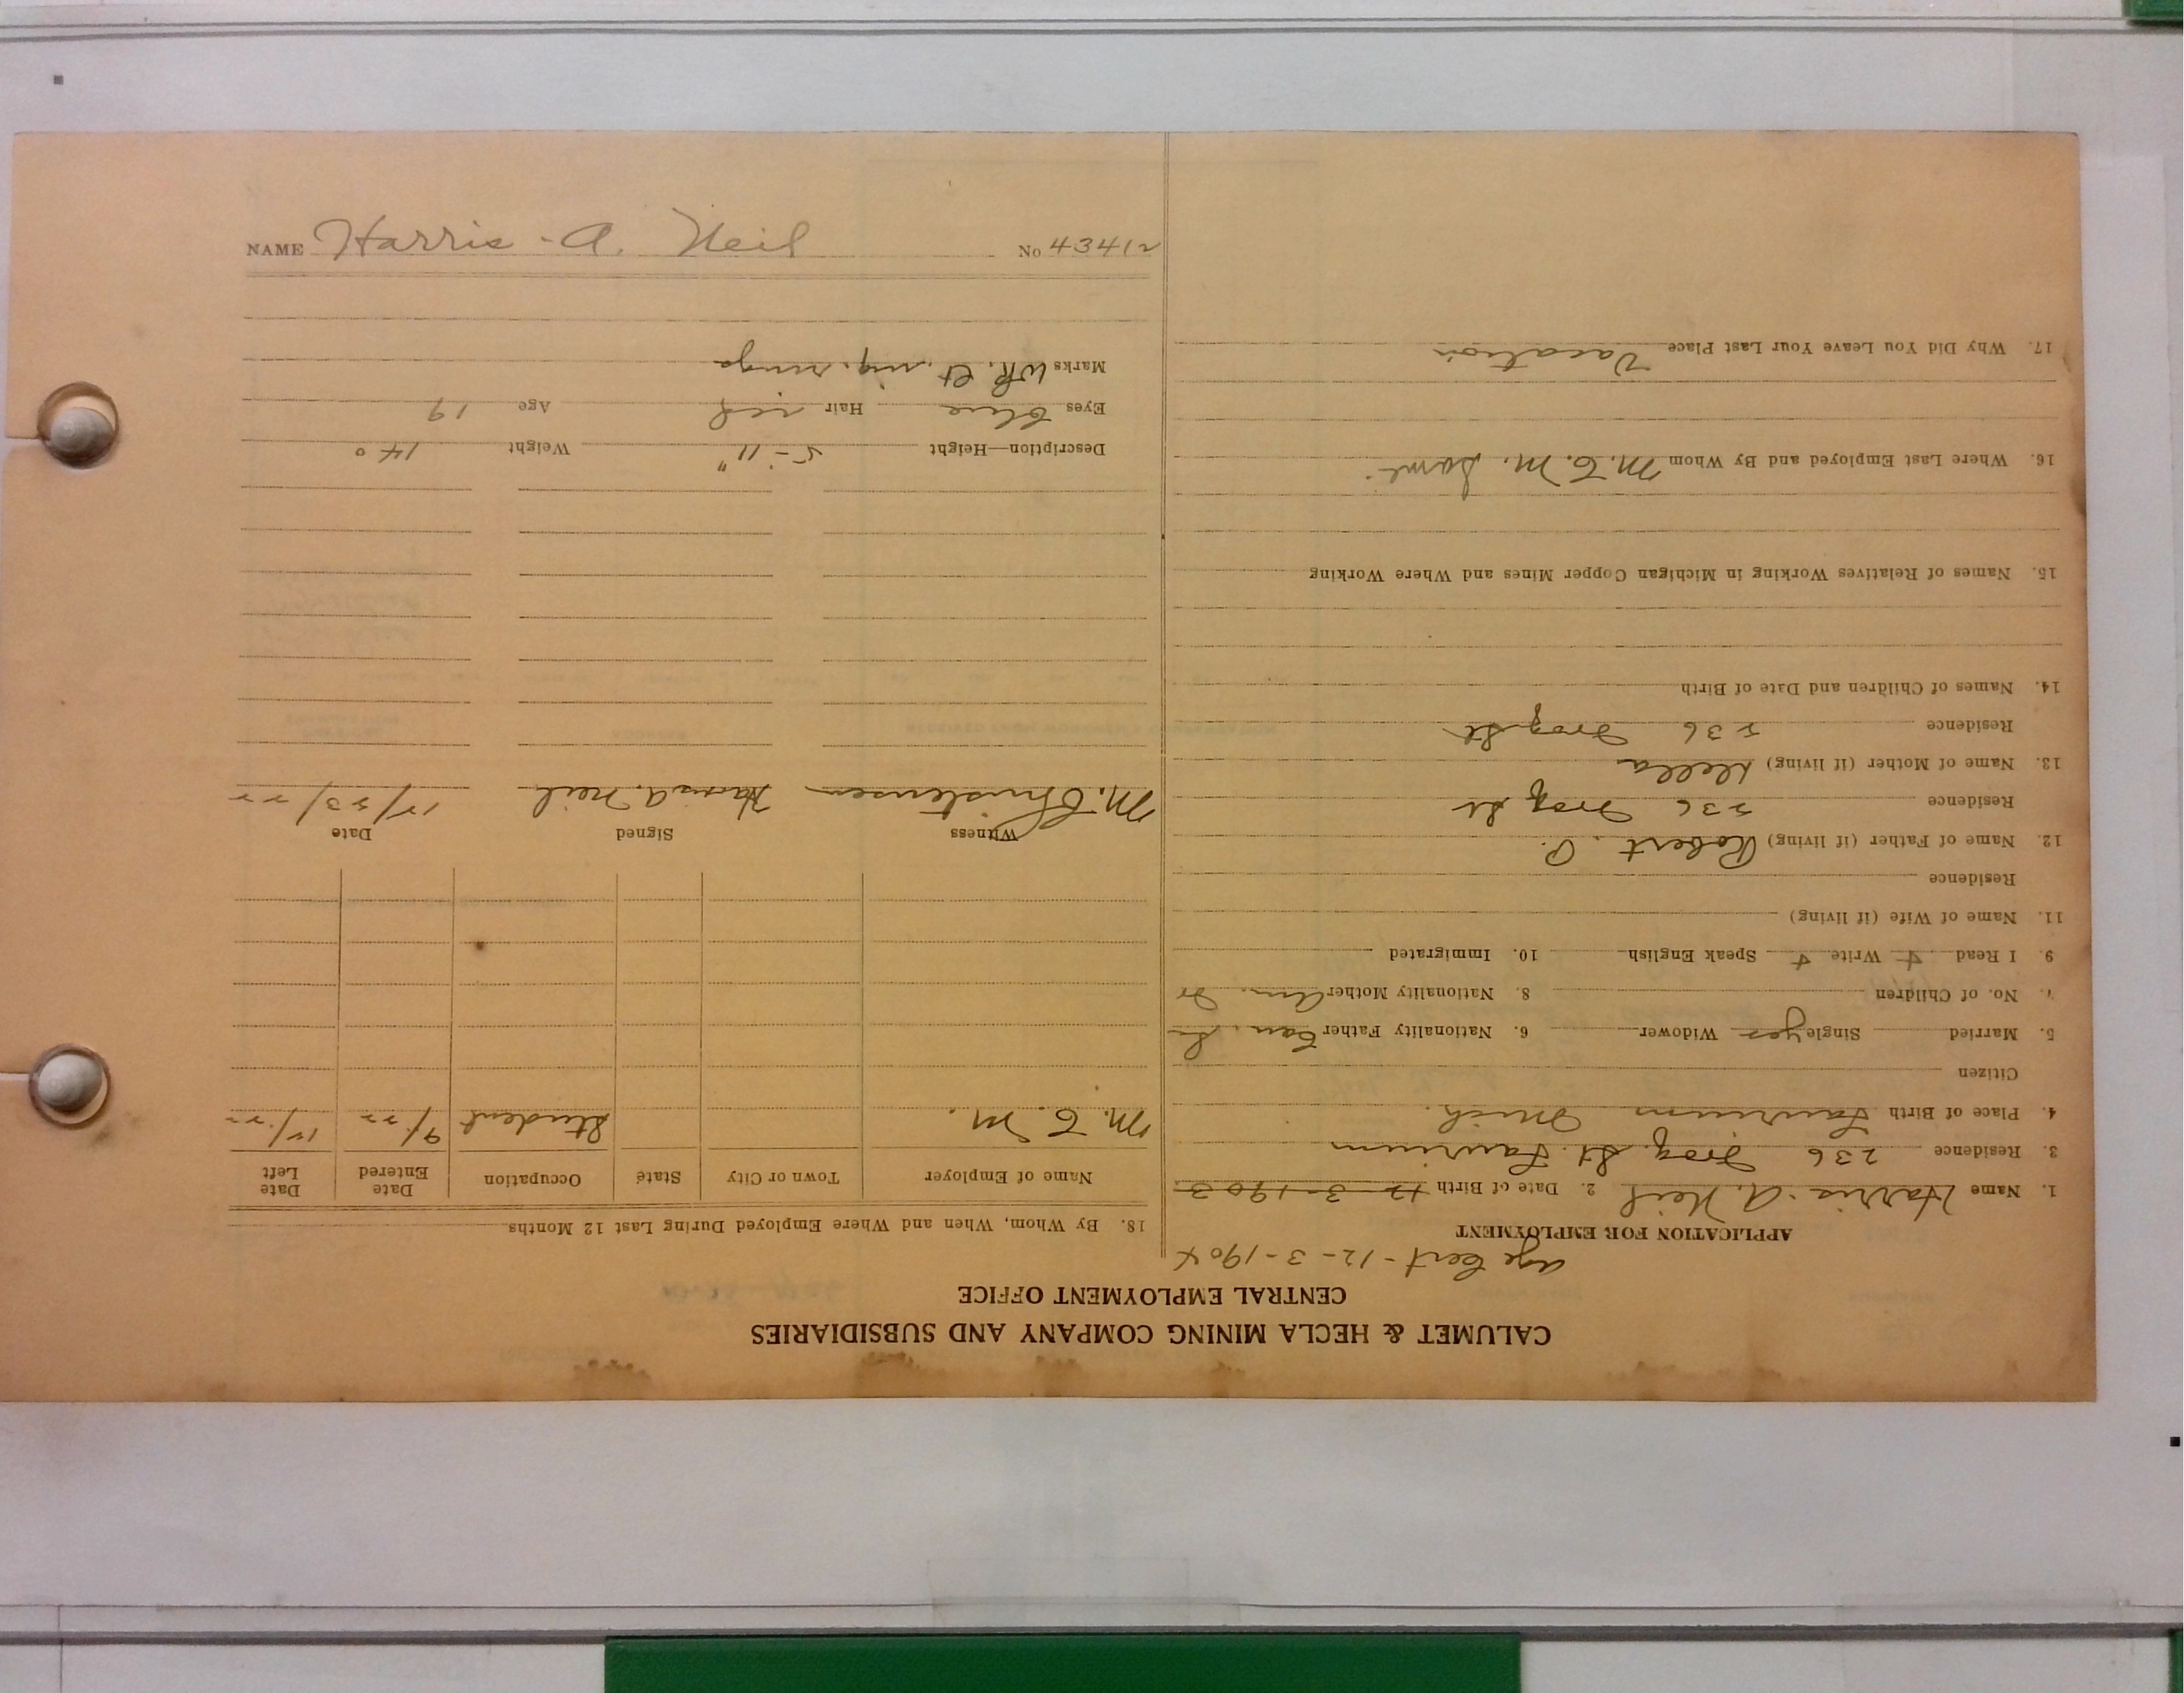 CALUMET & HECLA MINING COMPANY AND SUBSIDIARIES
CENTRAL EMPLOYMENT OFFICE
age Cert - 12-3-1904
APPLICATION FOR EMPLOYMENT
1. Name Harris A. Neil 2. Date of Birth 12-3-1903
3. Residence 236 St. Laurium
4. Place of Birth Laurium Mich.
Citizen
5. Married Single yes Widower 6. Nationality Father Can.
7. No. of Children 8. Nationality Mother Am.
9. I Read + Write + Speak English 10. Immigrated
11. Name of Wife (if living)
Residence
12. Name of Father (if living) Robert P.
Residence 236 St
13. Name of Mother (if living) Della
Residence 236 St
14. Names of Children and Date of Birth
15. Names of Relatives Working in Michigan Copper Mines and Where Working
16. Where Last Employed and By Whom M.C.M. Same
17. Why Did You Leave Your Last Place Vacation
18. By Whom, When and Where Employed During Last 12 Months
Name of Employer Town or City State Occupation Date Entered Date Left
M.C.M. Student 9/22 12/22
Witness Signed Date
M. Christensen Harris A. Neil 12/23/22
Description—Height 5-11" Weight 140
Eyes blue Hair red Age 19
Marks
NAME Harris - A. Neil No 43412